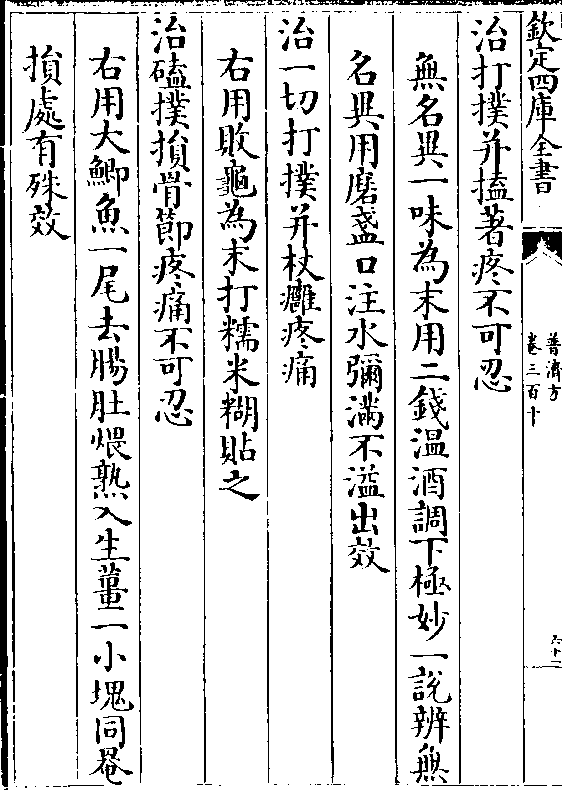 欽定四庫全書
普濟方
卷三百十
六十一
治打撲并搕著疼不可忍
無名異一味為末用二錢温酒調下極妙一說辨無
名異用磨盞口注水彌滿不溢出效
治一切打撲并杖癰疼痛
右用敗龜為末打糯米糊貼之
治磕撲損骨節疼痛不可忍
右用大鯽魚一尾去腸肚煨熟入生薑一小塊同罨
損處有殊效